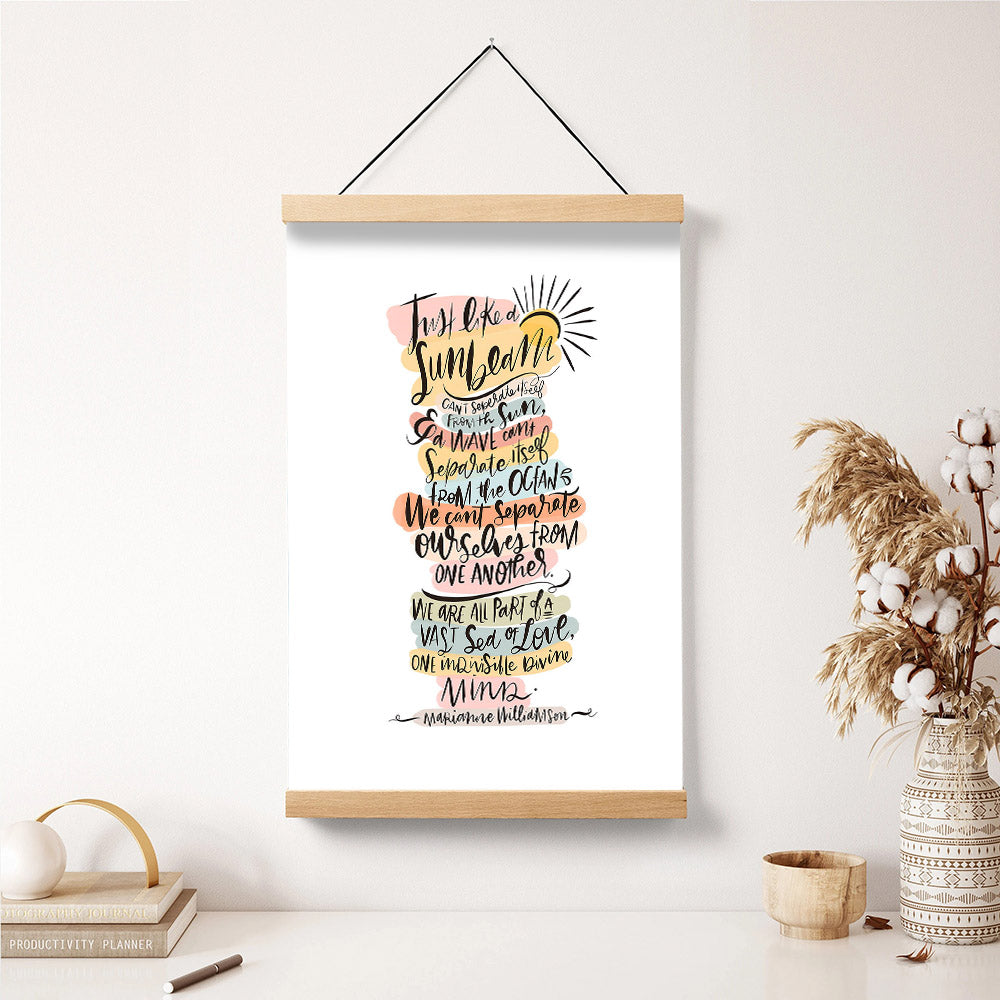 Just like a
Sunbeam
CAN'T Seperate itself
FROM th Sun,
& a WAVE can't
Separate itself
FROM the OCEAN
We cant Separate
OURSelves FROM
ONE ANOther.
WE ARE All PART of A
VAST Sea OF Love,
ONE indivisible Divine
Mind.
Marianne Williamson
TYPOGRAPHY JOURNAL
PRODUCTIVITY PLANNER